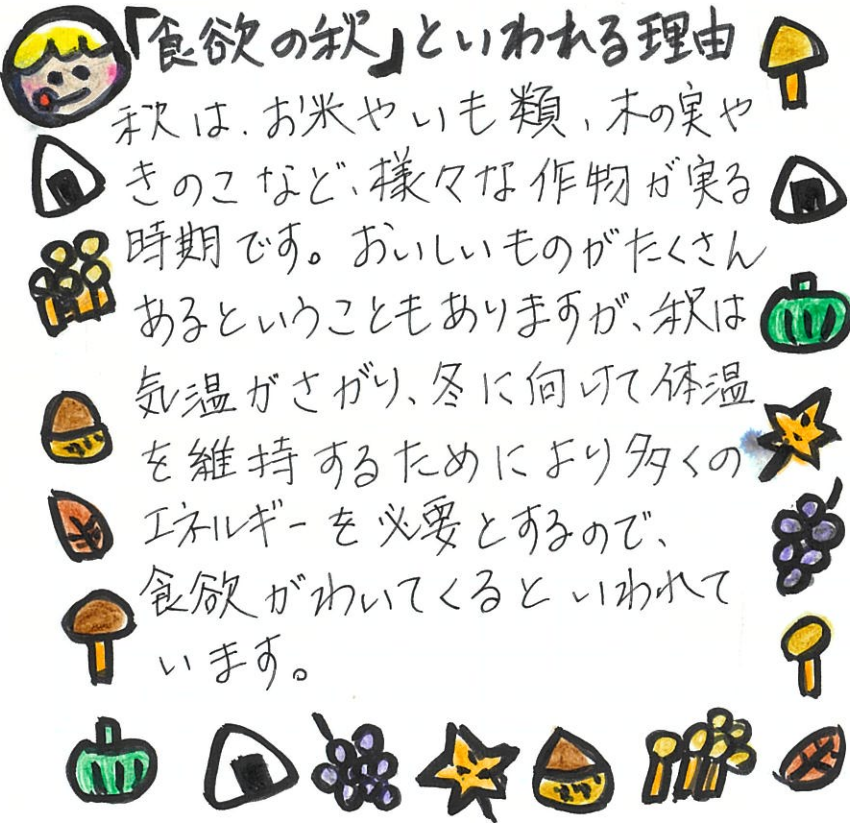 「食欲の秋」といわれる理由
秋は、お米やいも類、木の実や
きのこなど、様々な作物が実る
時期です。おいしいものがたくさん
あるということもありますが、秋は
気温がさがり、冬に向けて体温
を維持するためにより多くの
エネルギーを必要とするので、
食欲がわいてくるといわれて
います。